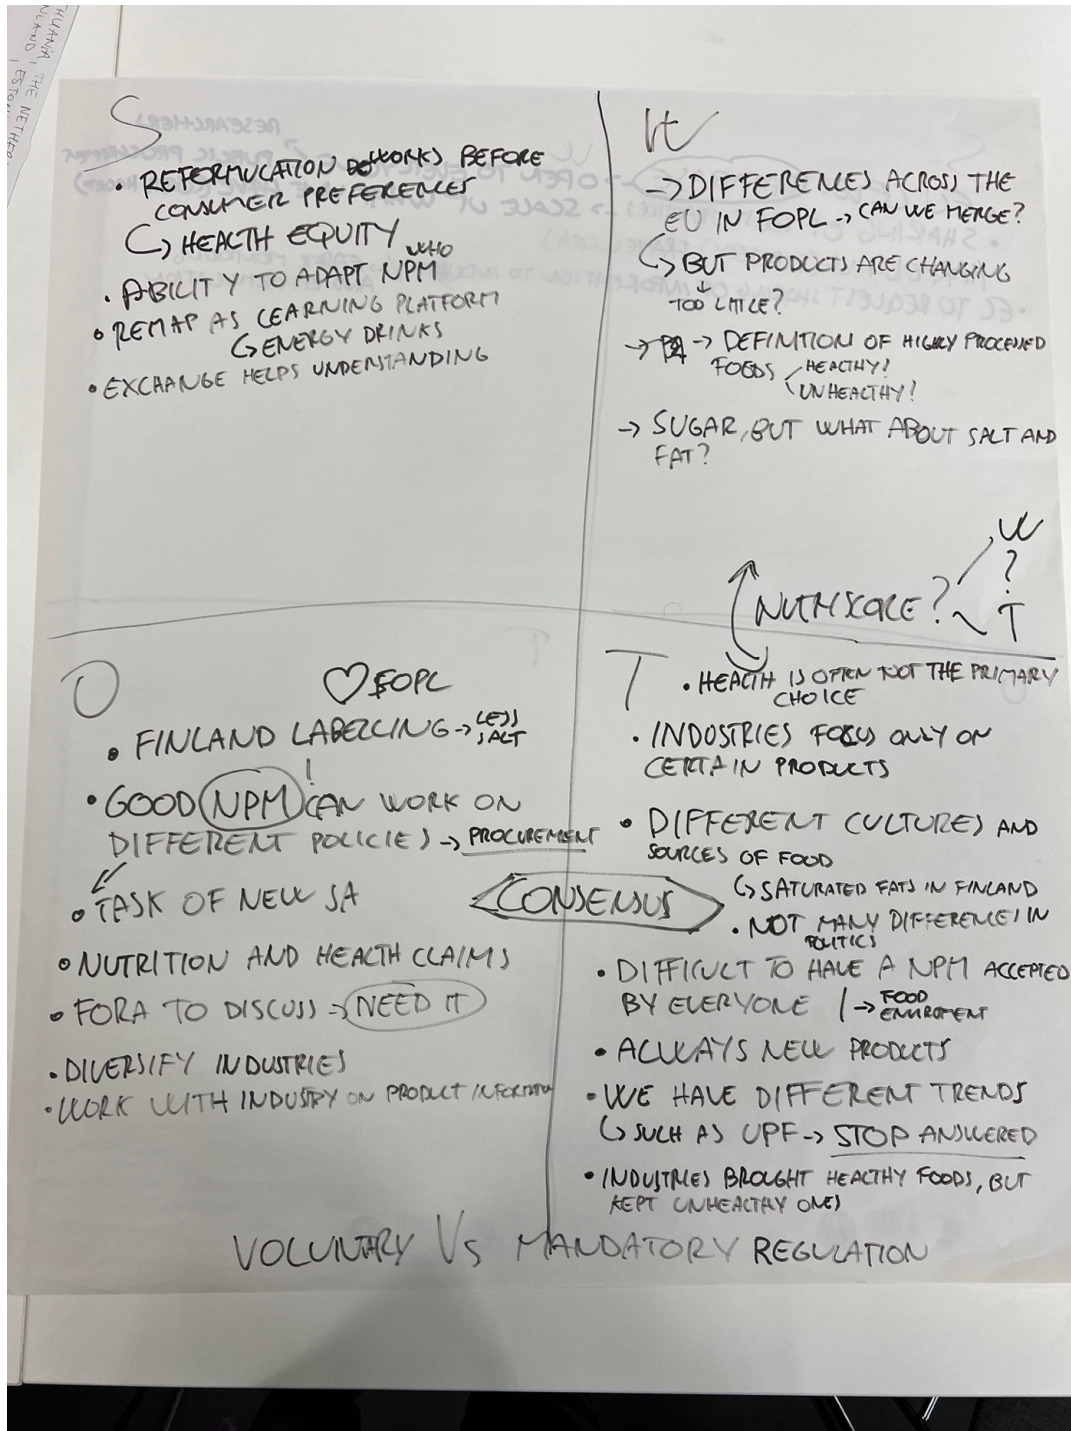 THUANIA, THE NETHER
NLAND, ESTON
S
• REFORMULATION WORKS BEFORE
CONSUMER PREFERENCES
↳ HEALTH EQUITY
• ABILITY TO ADAPT WHO NPM
• REMAP AS LEARNING PLATFORM
↳ ENERGY DRINKS
• EXCHANGE HELPS UNDERSTANDING
W
→ DIFFERENCES ACROSS THE
EU IN FOPL → CAN WE MERGE?
↳ BUT PRODUCTS ARE CHANGING
↓
TOO LITTLE?
→ → DEFINITION OF HIGHLY PROCESSED
FOODS HEALTHY?
UNHEALTHY?
→ SUGAR, BUT WHAT ABOUT SALT AND
FAT?
W
?
NUTRISCORE? ?
T
O
♡ FOPL
• FINLAND LABELLING → LESS
SALT
!
• GOOD NPM CAN WORK ON
DIFFERENT POLICIES → PROCUREMENT
• TASK OF NEW SA
• NUTRITION AND HEALTH CLAIMS
• FORA TO DISCUSS → NEED IT
• DIVERSIFY INDUSTRIES
• WORK WITH INDUSTRY ON PRODUCT INFORMATION
CONSENSUS
T
• HEALTH IS OFTEN NOT THE PRIMARY
CHOICE
• INDUSTRIES FOCUS ONLY ON
CERTAIN PRODUCTS
• DIFFERENT CULTURES AND
SOURCES OF FOOD
↳ SATURATED FATS IN FINLAND
• NOT MANY DIFFERENCES IN
POLITICS
• DIFFICULT TO HAVE A NPM ACCEPTED
BY EVERYONE | → FOOD
ENVIROMENT
• ALWAYS NEW PRODUCTS
• WE HAVE DIFFERENT TRENDS
↳ SUCH AS UPF → STOP ANSWERED
• INDUSTRIES BROUGHT HEALTHY FOODS, BUT
KEPT UNHEALTHY ONES
VOLUNTARY VS MANDATORY REGULATION